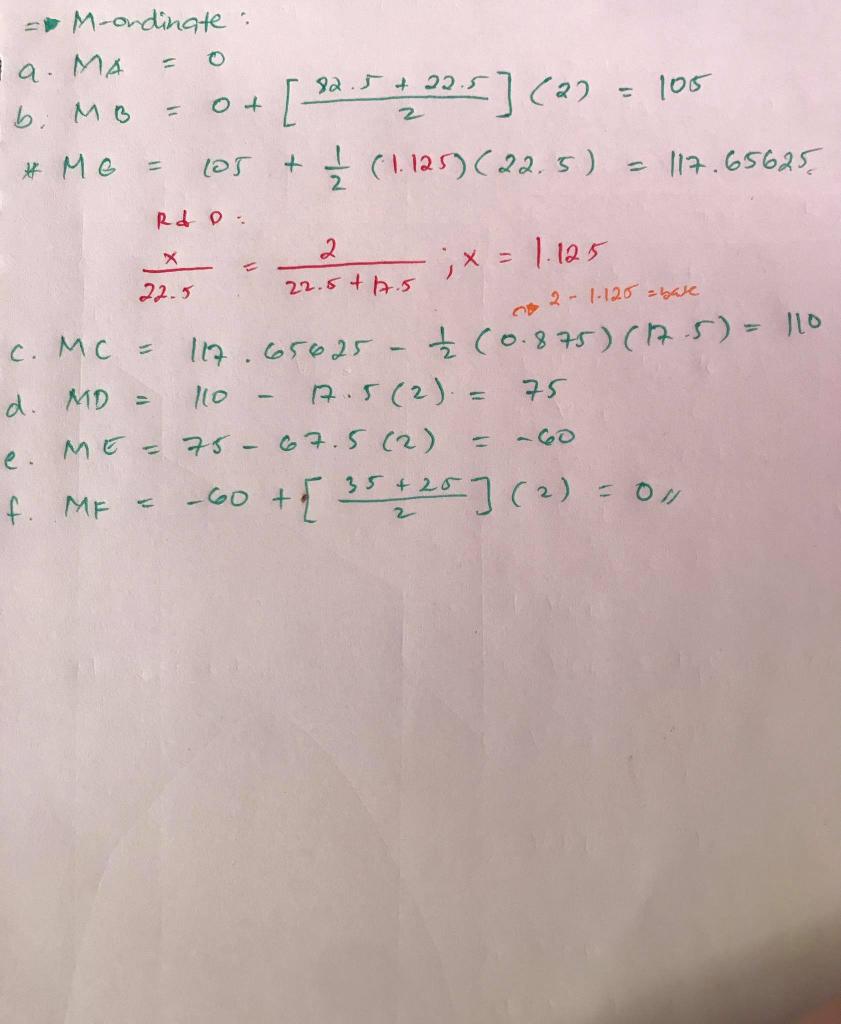 => M-ordinate :
a. MA = 0
b. MB = 0 + [ (82.5 + 22.5)/2 ] (2) = 105
* MG = 105 + 1/2 (1.125)(22.5) = 117.65625
R & D :
x/22.5 = 2/(22.5 + 17.5) ; x = 1.125
=> 2 - 1.125 = base
c. MC = 117.65625 - 1/2 (0.875)(17.5) = 110
d. MD = 110 - 17.5 (2) = 75
e. ME = 75 - 67.5 (2) = -60
f. MF = -60 + [ (35 + 25)/2 ] (2) = 0 //